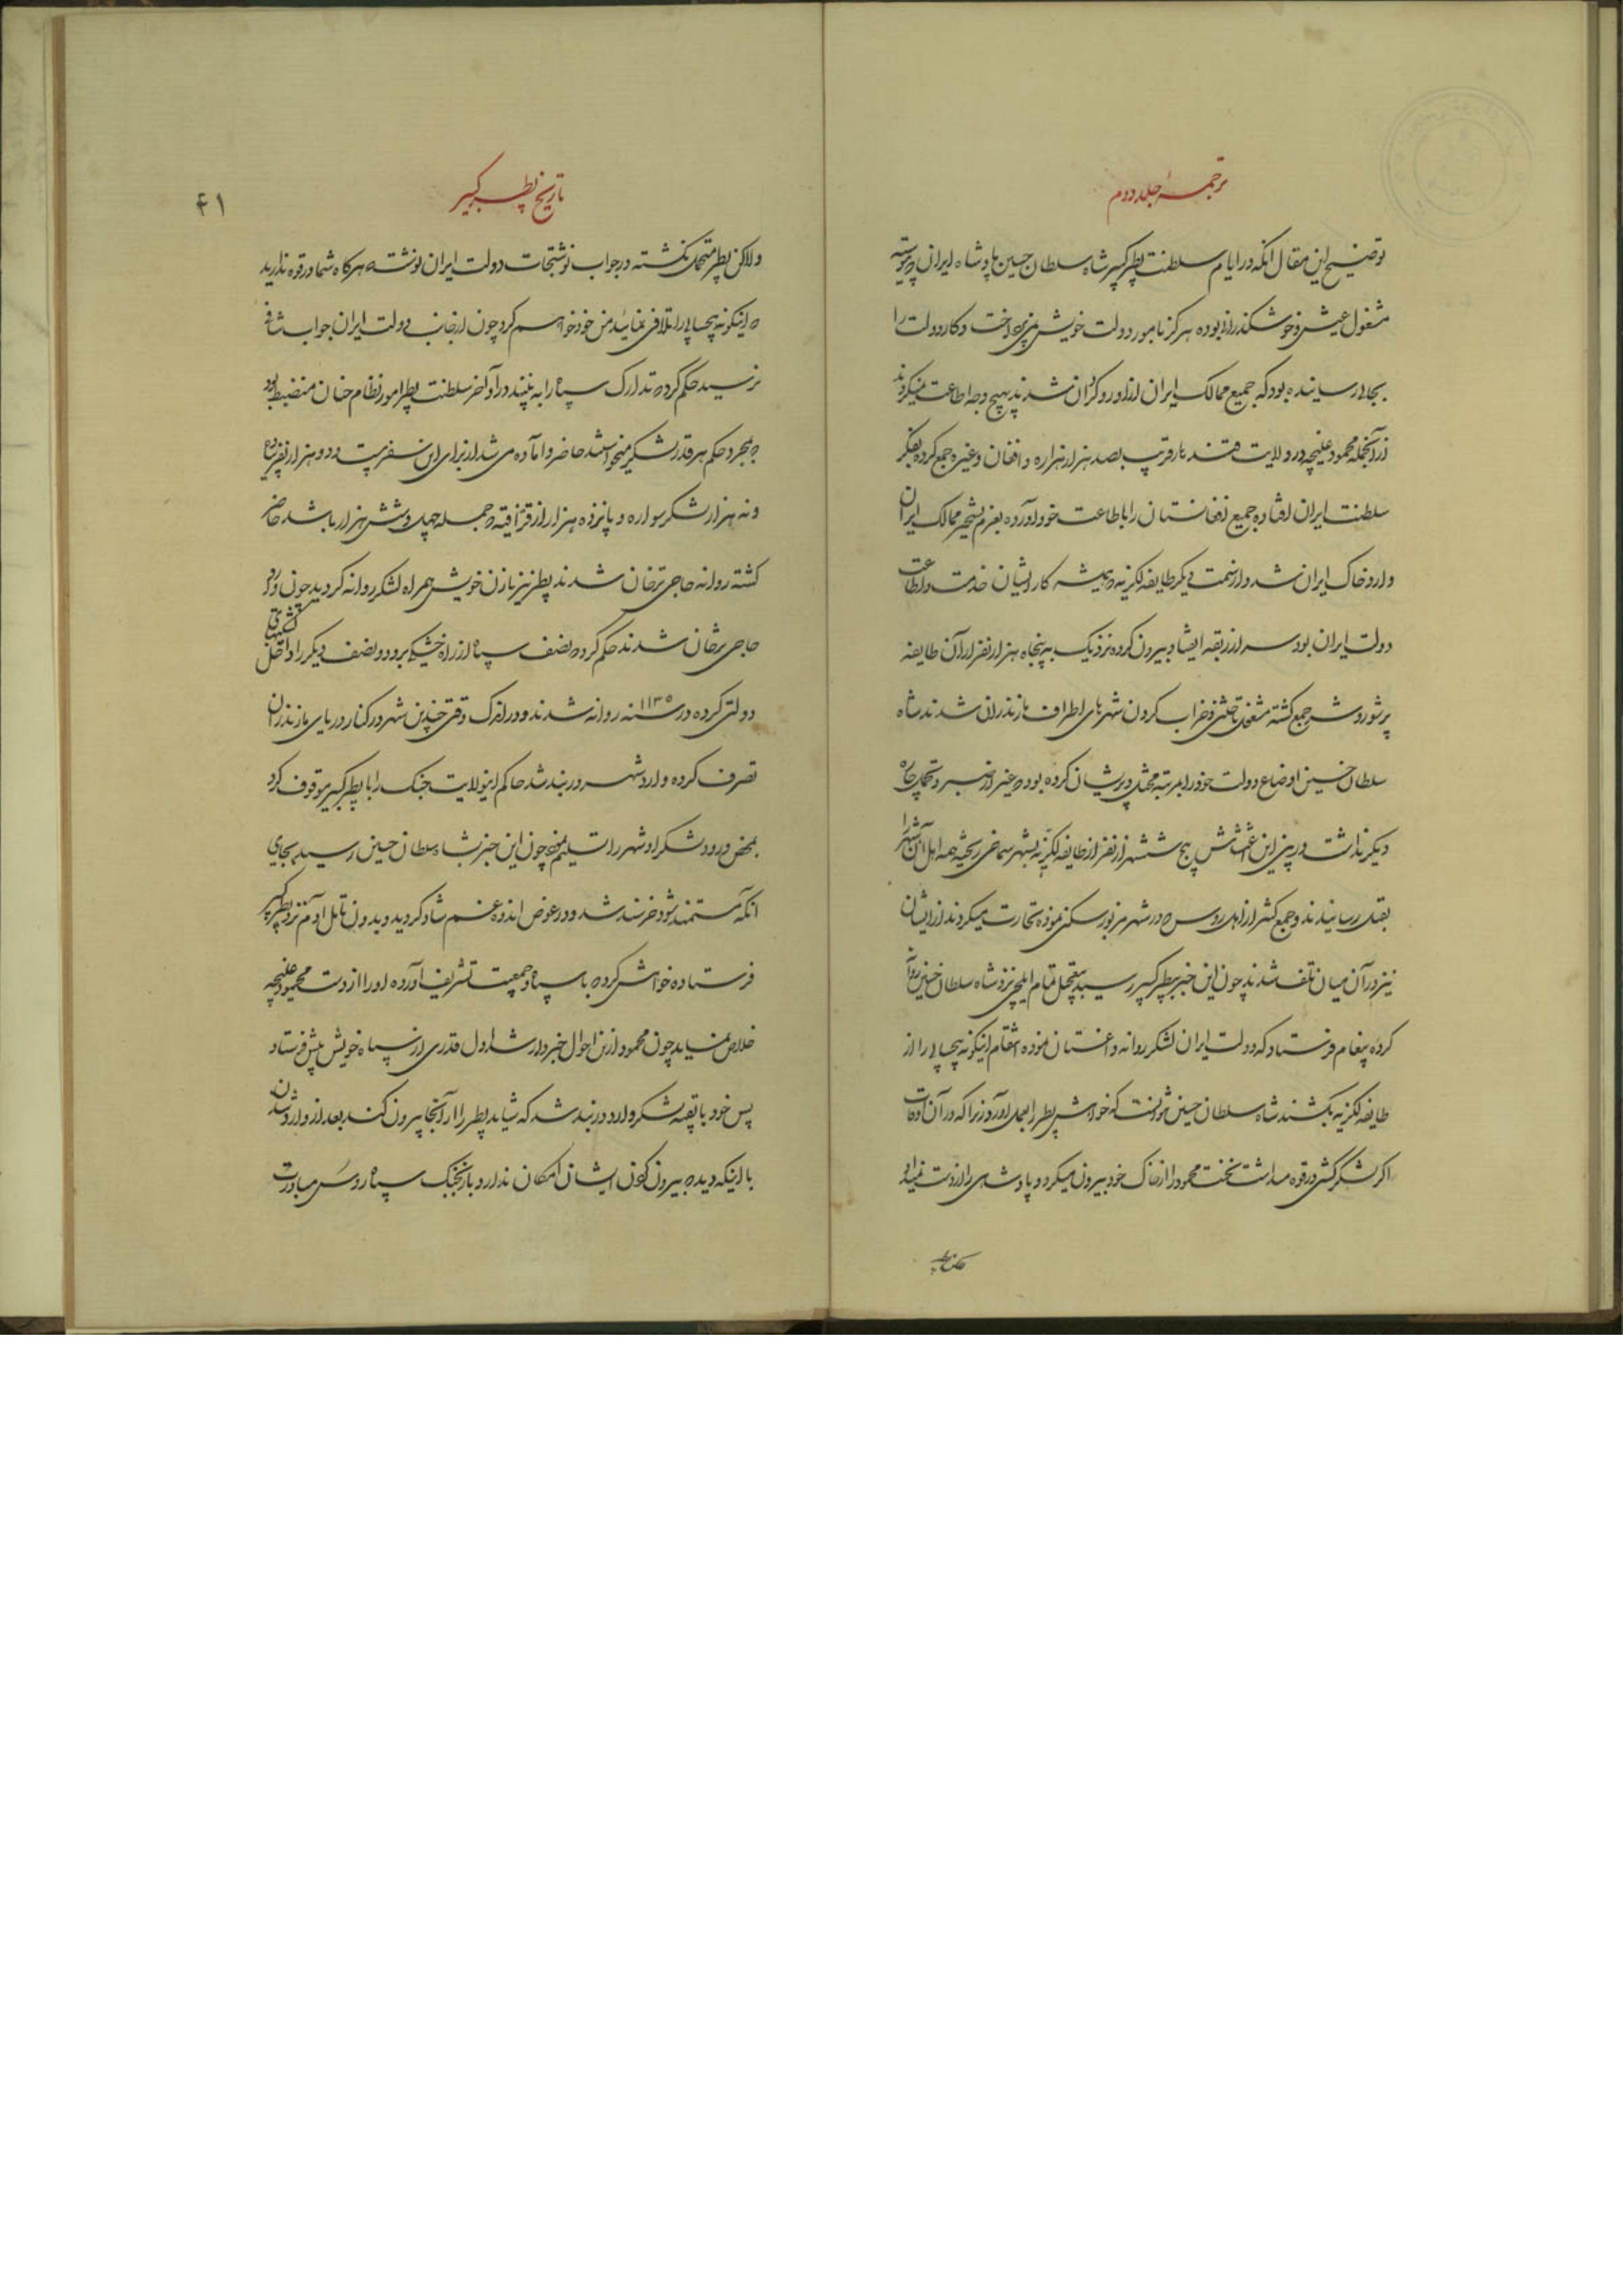 ترجمهٔ جلد دوم
توضیح این مقال آنکه در ایام سلطنت پطر کبیر شاه سلطان حسین پادشاه ایران پیوسته
مشغول عیش و خوشگذرانی بوده هرگز بامور دولت خویش نمی‌پرداخت و کار دولت را
بجائی رسانیده بود که جمیع ممالک ایران از او روگردان شدند بهیچ وجه اطاعت نمیکردند
از آنجمله محمود غلیجه در ولایت قندهار قریب بصد هزار هزاره و افغان و غیره جمع کرده بفکر
سلطنت ایران افتاده جمیع افغانستان را باطاعت خود درآورده بعزم تسخیر ممالک ایران
وارد خاک ایران شد و از سمت دیگر طایفه لکزیه که همیشه کار ایشان خدمت و اطاعت
دولت ایران بود سر از ربقه انقیاد بیرون کرده نزدیک به پنجاه هزار نفر از آن طایفه
پر شور و شر جمع گشته مشغول تاختن و خراب کردن شهرهای اطراف مازندران شدند شاه
سلطان حسین اوضاع دولت خود را بمرتبه مختل و پریشان کرده بود که غیر از صبر و تحمل چاره
دیگر نداشت در بین این اغتشاش پنج شش هزار نفر از طایفه لکزیه بشهر شماخی ریخته همه اهل آن شهر را
بقتل رسانیدند و جمع کثیر از اهل روس که در شهر مزبور سکنی نموده تجارت میکردند از ایشان
نیز در آن میان تلف شدند چون این خبر بپطر کبیر رسید بتعجیل تمام ایلچی نزد شاه سلطان حسین روانه
کرده پیغام فرستاد که دولت ایران لشکر روانه داغستان نموده انتقام اینگونه بیحسابی را از
طایفه لکزیه بکشند شاه سلطان حسین نتوانست که خواهش پطر را بعمل آورد زیرا که در آن اوقات
اگر لشکرکشی در قوه میداشت نخست محمود را از خاک خود بیرون میکرد و پادشاهی را از دست نمیداد
تاریخ پطر کبیر
۴۱
ولاکن پطر متحمل نگشته در جواب نوشتجات دولت ایران نوشت که هرگاه شما در قوه ندارید
که اینگونه بیحسابی را تلافی نمائید من خود خواهم کرد چون از جانب دولت ایران جواب شافی
نرسید حکم کرد که تدارک سپاه را به بینند در اواخر سلطنت پطر امور نظام چنان منضبط بود
که بمجرد حکم هر قدر لشکر میخواستند حاضر و آماده می شد از برای این سفر بیست و دو هزار نفر پیاده
و نه هزار لشکر سواره و پانزده هزار از قزاقیه که جمله چهل و شش هزار باشد حاضر
گشته روانه حاجی ترخان شدند پطر نیز با زن خویش همراه لشکر روانه گردید چون وارد
حاجی ترخان شدند حکم کرد که نصف سپاه از راه خشکی برود و نصف دیگر را داخل کشتیهای
دولتی کرده در سنه ۱۱۳۵ روانه شدند و در اندک وقتی چندین شهر در کنار دریای مازندران
تصرف کرده وارد شهر دربند شد حاکم این ولایت جنگ را با پطر کبیر موقوف کرد
بمحض ورود لشکر او شهر را تسلیم نمود چون این خبر بشاه سلطان حسین رسید بجای
آنکه مستمند شود خرسند شد و در عوض اندوه و غم شاد گردید و بدون تامل آدم نزد پطر کبیر
فرستاده خواهش کرد که با سپاه و جمعیت تشریف آورده او را از دست محمود غلیجه
خلاص نماید چون محمود از این احوال خبردار شد اول قدری از سپاه خویش پیش فرستاد
پس خود با بقیه لشکر وارد دربند شد که شاید پطر را از آنجا بیرون کند بعد از وارد شدن
با اینکه دید که بیرون کردن ایشان امکان ندارد باز بجنگ سپاه روس مبادرت